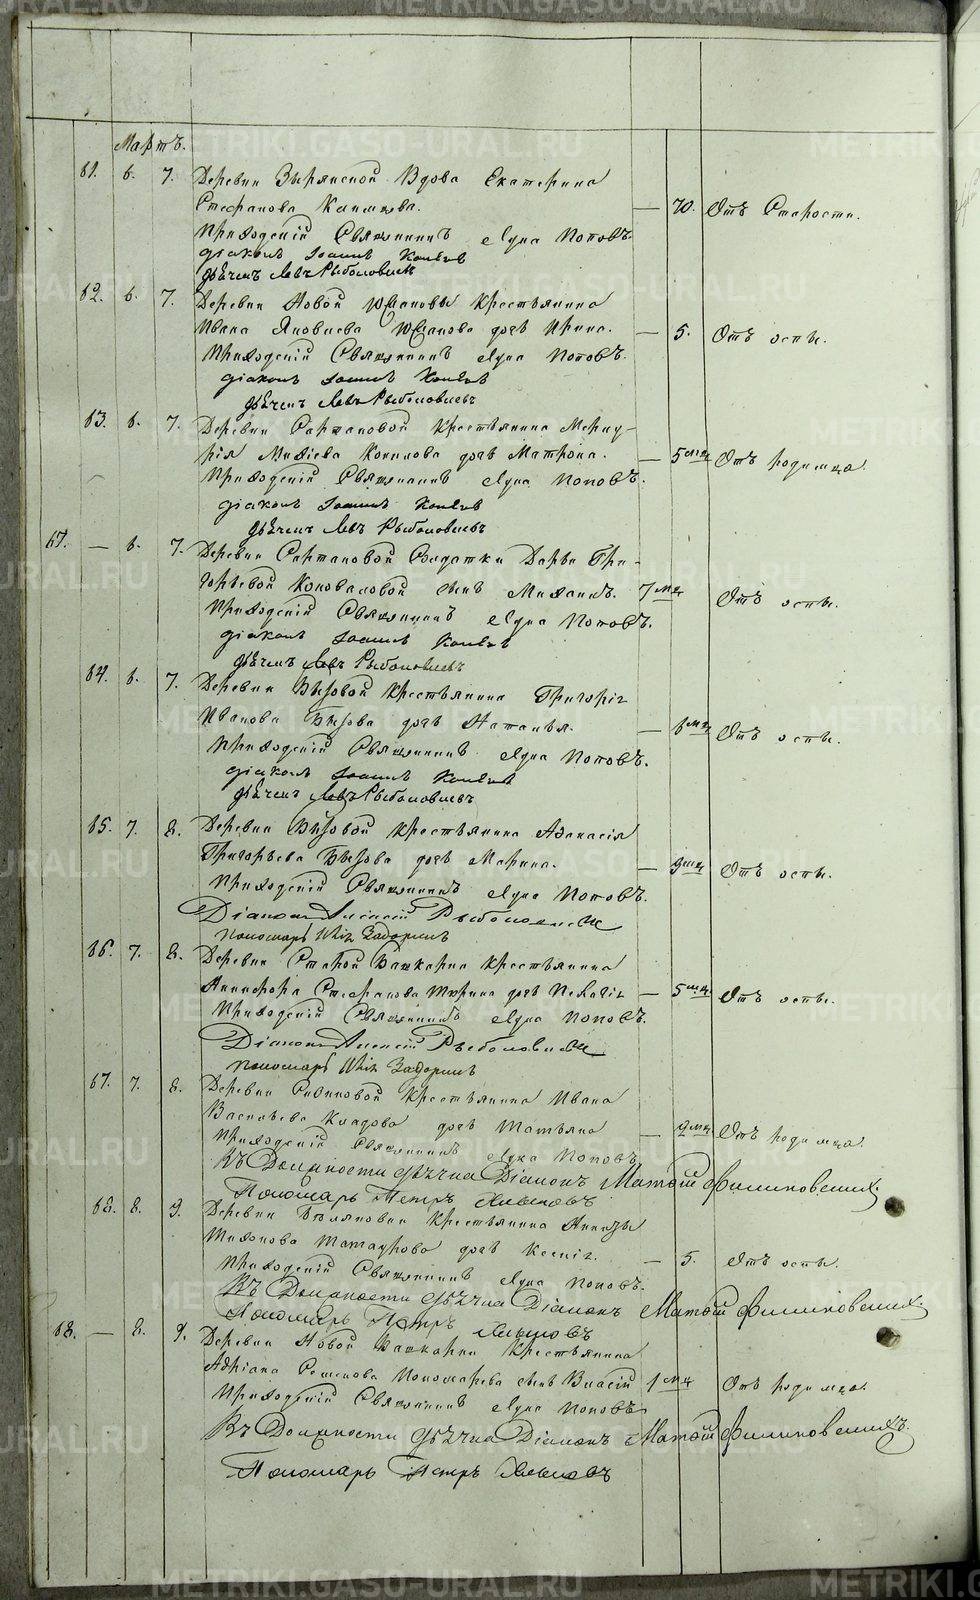 Мартъ.
61. 6. 7. Деревни Зырянской Вдова Екатерина
Стефанова — 70. Отъ Старости.
Приходскій Священникъ Лука Поповъ.
діаконъ Іоаннъ
дьячекъ Левъ Рыболовлевъ
62. 6. 7. Деревни Новой крестьянина
Ивана Яковлева дочь Ирина. — 5. Отъ оспы.
Приходскій Священникъ Лука Поповъ.
діаконъ Іоаннъ
дьячекъ Левъ Рыболовлевъ
63. 6. 7. Деревни крестьянина Мерку-
рія Конилова дочь Матрона. — 5 мц Отъ родимца.
Приходскій Священникъ Лука Поповъ.
діаконъ Іоаннъ
дьячекъ Левъ Рыболовлевъ
67. — 6. 7. Деревни Солдатки Дарьи Гри-
горьевой Коноваловой сынъ Михаилъ. 7 мц Отъ оспы.
Приходскій Священникъ Лука Поповъ.
діаконъ Іоаннъ
дьячекъ Левъ Рыболовлевъ
64. 6. 7. Деревни Бызовой крестьянина Григорія
Иванова Бызова дочь Наталья. — 6 мц Отъ оспы.
Приходскій Священникъ Лука Поповъ.
діаконъ Іоаннъ
дьячекъ Левъ Рыболовлевъ
65. 7. 8. Деревни Бызовой крестьянина Афанасія
Григорьева Бызова дочь Марина. — 9 мц Отъ оспы.
Приходскій Священникъ Лука Поповъ.
Діаконъ Алексій
пономарь Задоринъ
66. 7. 8. Деревни Старой Башкарки крестьянина
Никифора Стефанова Тюрина дочь Пелагія — 5 мц Отъ оспы.
Приходскій Священникъ Лука Поповъ.
Діаконъ Алексій
пономарь Задоринъ
67. 7. 8. Деревни крестьянина Ивана
Васильева дочь Татьяна — 9 мц Отъ родимца.
Приходскій Священникъ Лука Поповъ
Въ Должности дьячка Діаконъ Матѳій Филиковскихъ.
Пономарь Петръ Хлыновъ
68. 8. 9. Деревни крестьянина
Тихонова дочь Ксенія. — 5. Отъ оспы.
Приходскій Священникъ Лука Поповъ.
Въ Должности дьячка Діаконъ Матѳій Филиковскихъ.
Пономарь Петръ Хлыновъ
68. — 8. 9. Деревни Новой Башкарки Крестьянина
Адріана Пономарева сынъ Власій 1 мц Отъ родимца.
Приходскій Священникъ Лука Поповъ
Въ Должности дьячка Діаконъ Матѳій Филиковскихъ.
Пономарь Петръ Хлыновъ
METRIKI.GASO-URAL.RU